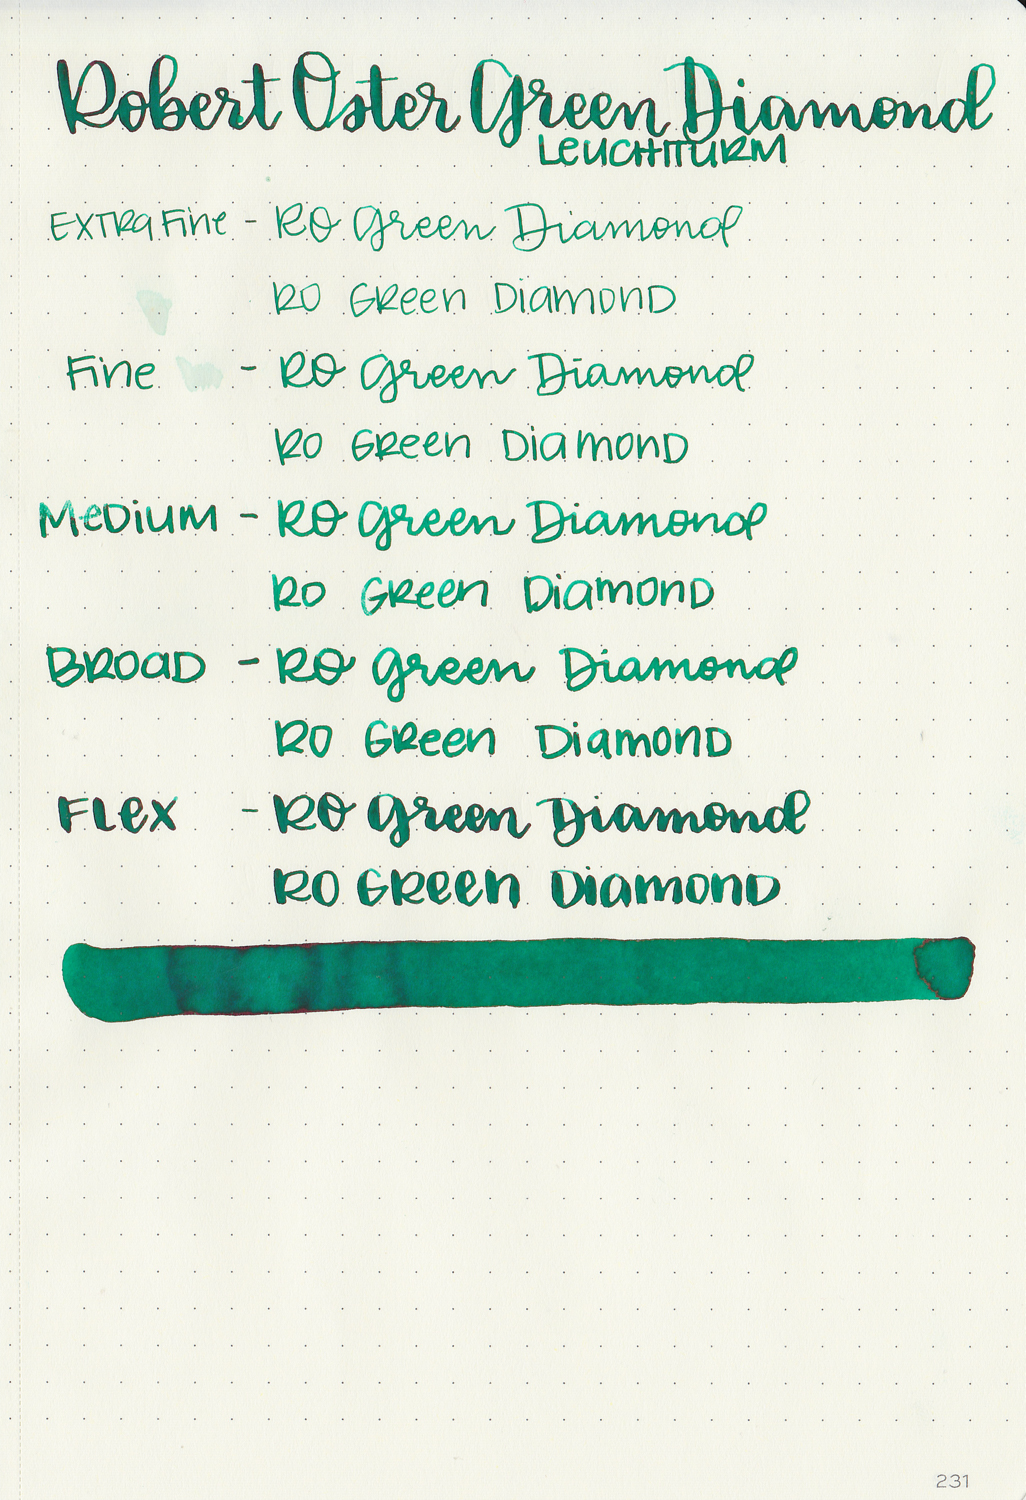 Robert Oster Green Diamond
LEUCHTTURM
EXTRA Fine - RO Green Diamond
RO GReen Diamond
Fine - RO Green Diamond
RO GReen Diamond
MeDiUM - RO Green Diamond
RO GReen Diamond
BROAD - RO Green Diamond
RO GReen Diamond
FLex - RO Green Diamond
RO GReen Diamond
231